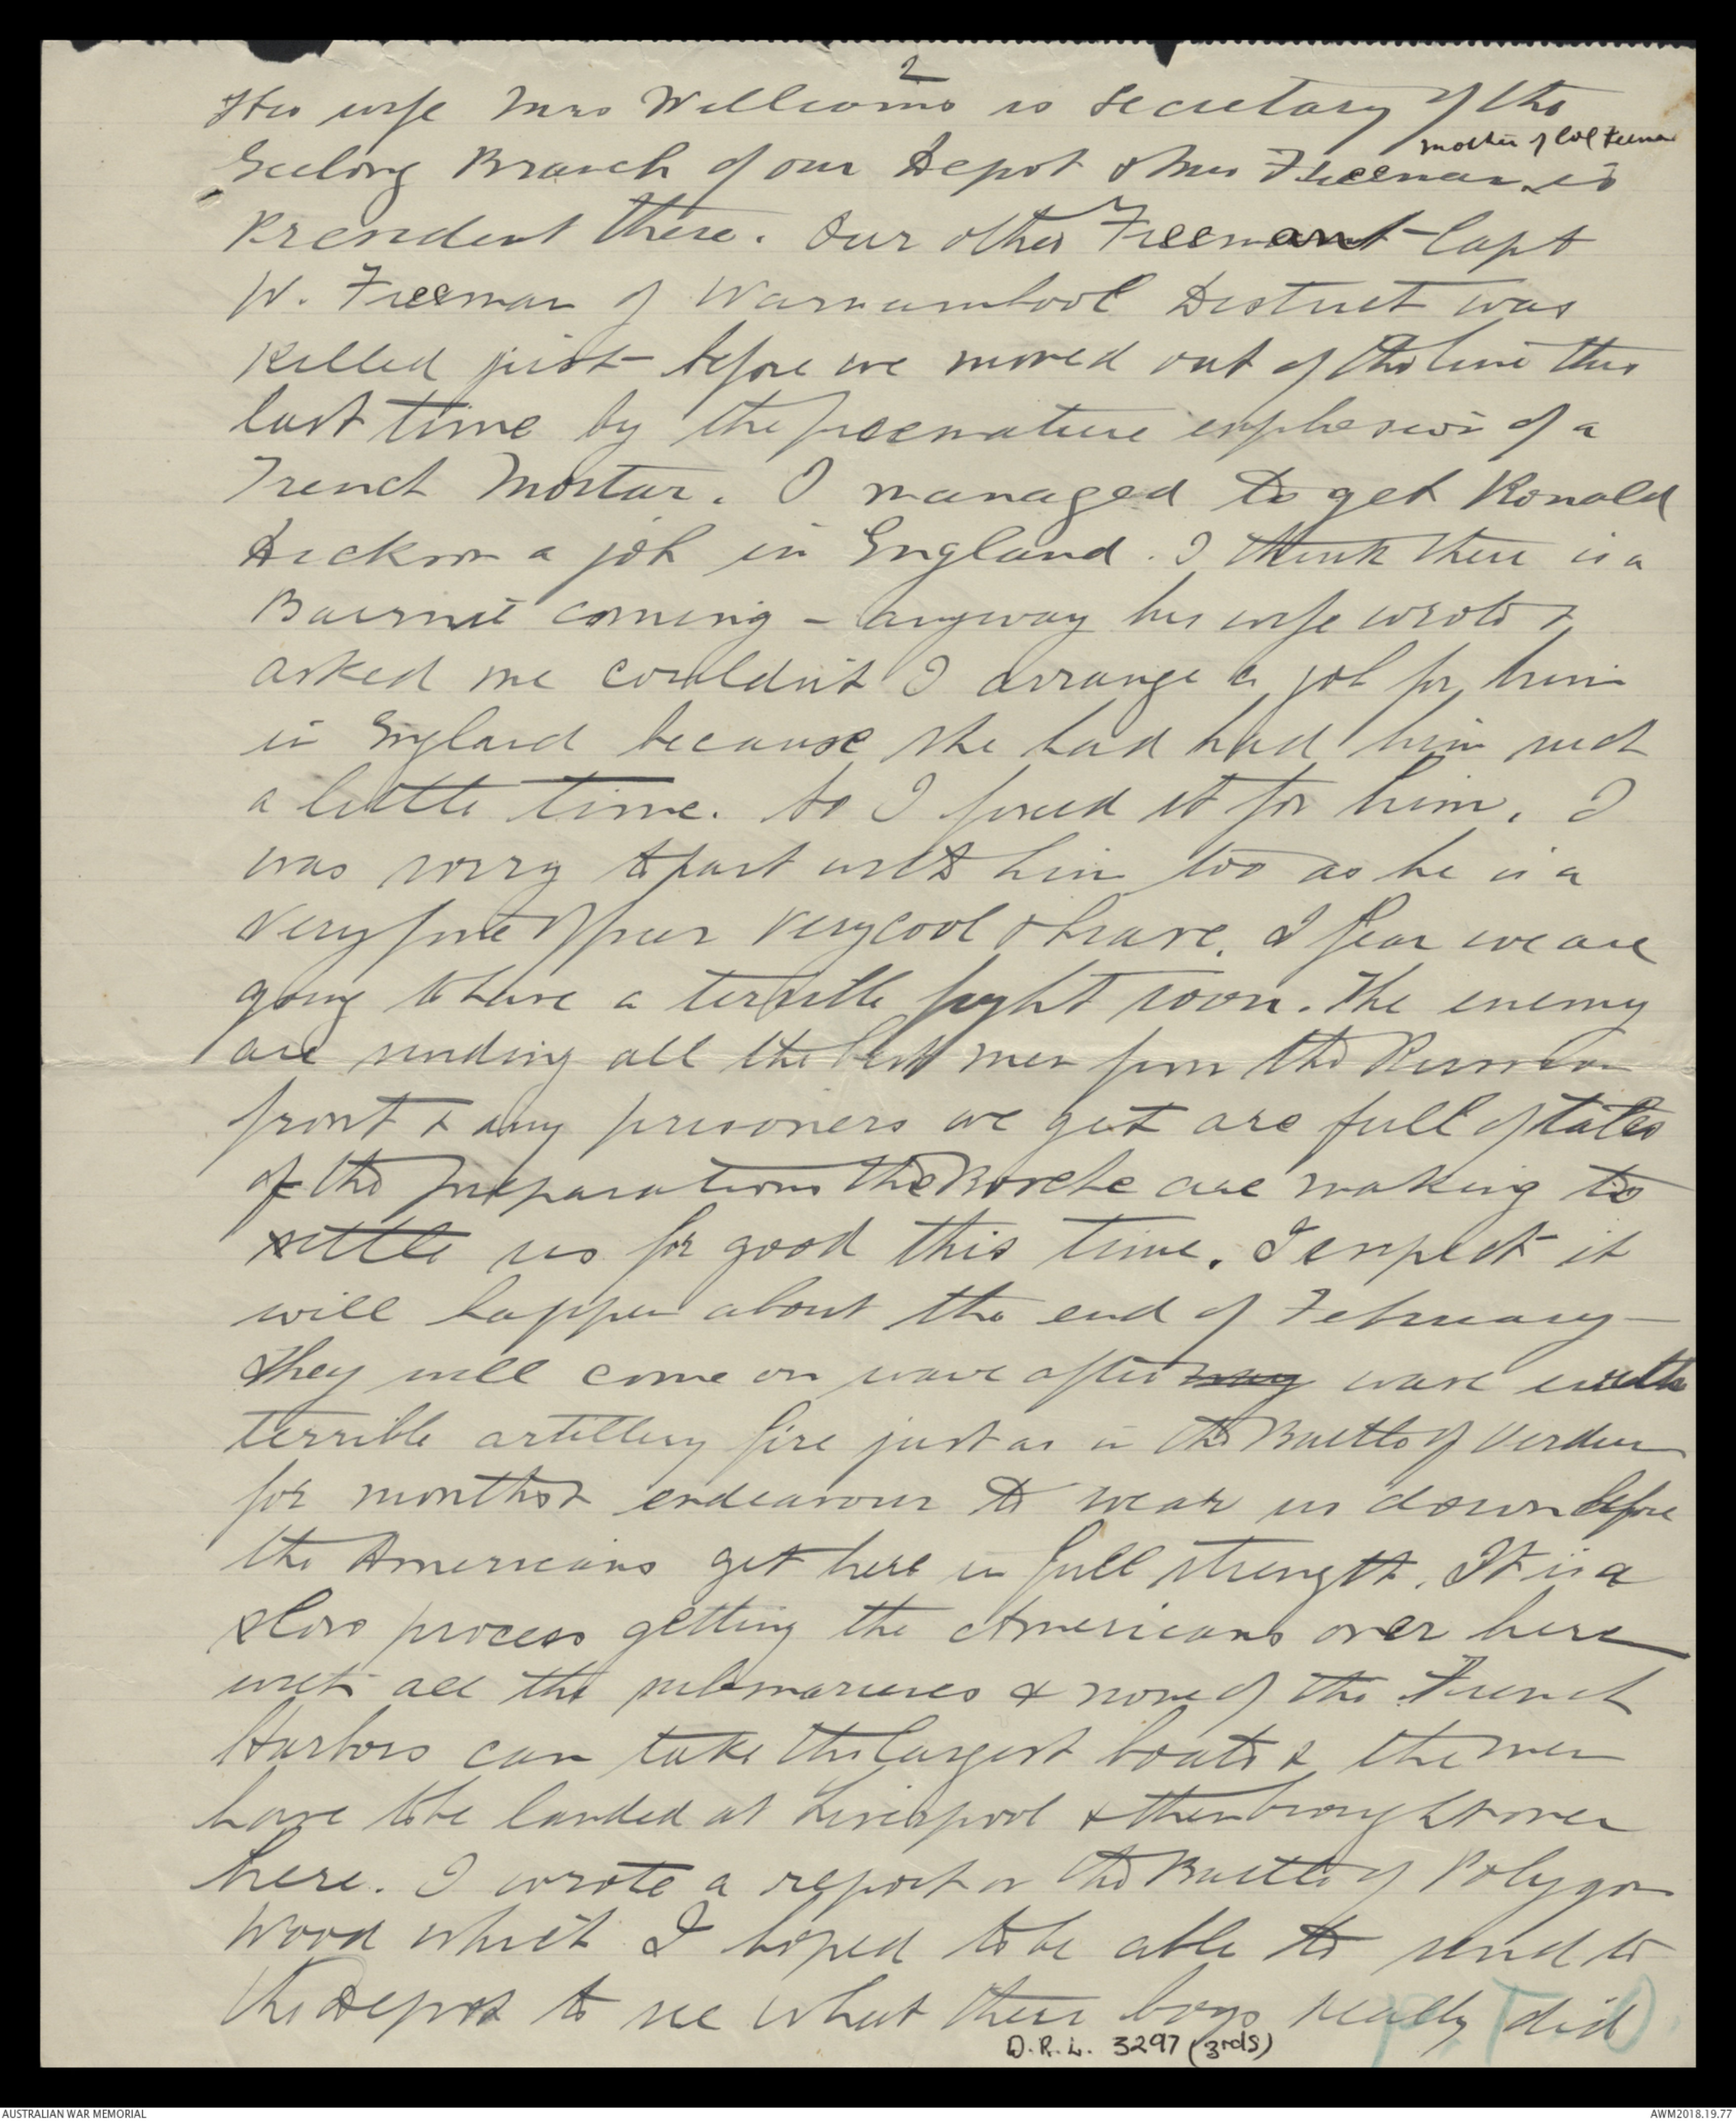 2
His wife Mrs Williams is Secretary of the
mother of Col Freeman
Geelong Branch of our Depot & Mrs Freeman is
President there. Our other Freeman Capt
W. Freeman of Warrnambool District was
killed just before we moved out of the line this
last time by the premature explosion of a
Trench Mortar. I managed to get Ronald
Dickson a job in England. I think there is a
coming - anyway his wife wrote &
asked me couldn't I arrange a job for him
in England because she had had him such
a little time. So I fixed it for him. I
was sorry to part with him too as he is a
very fine Officer very cool & brave. I fear we are
going to have a terrible fight soon. The enemy
are sending all the best men from the Russian
front & any prisoners we get are full of tales
of the preparations the Boche are making to
settle us for good this time. I expect it
will happen about the end of February -
They will come on wave after way wave with
terrible artillery fire just as in the Battle of Verdun
for months & endeavour to wear us down before
the Americans get here in full strength. It is a
slow process getting the Americans over here
with all the submarines & none of the French
Harbors can take the largest boats & the men
have to be landed at Liverpool & then brought over
here. I wrote a report on the Battle of Polygon
Wood which I hoped to be able to send to
the Depot to see what their boys really did
P.T.O
D.R.L. 3297 (3rdS)
AUSTRALIAN WAR MEMORIAL
AWM2018.19.77